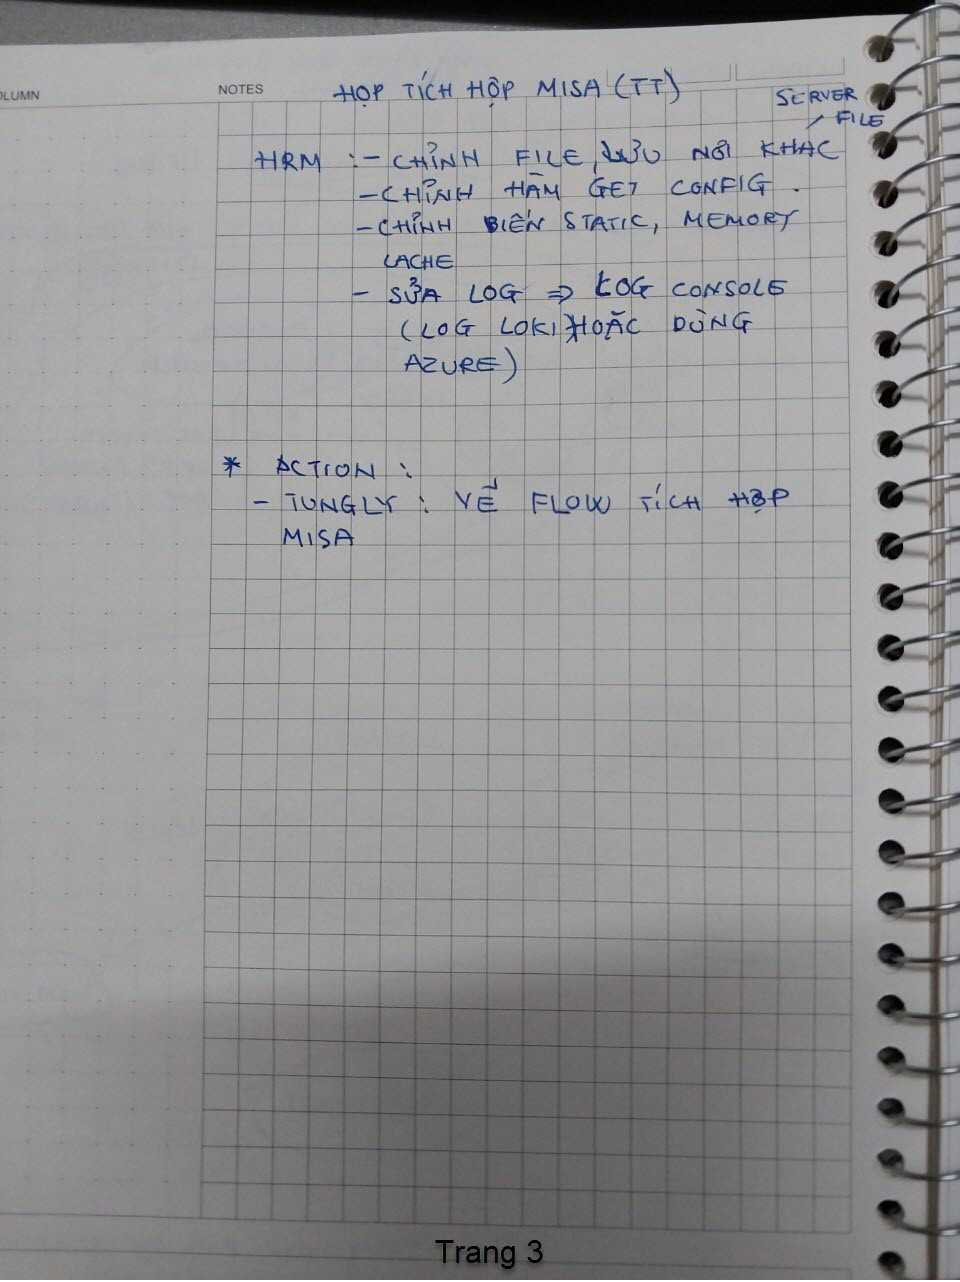 OLUMN
NOTES
HỌP TÍCH HỘP MISA (TT)
SERVER
FILE
HRM : - CHỈNH FILE, LƯU NƠI KHÁC
- CHỈNH HÀM GET CONFIG.
- CHỈNH BIẾN STATIC, MEMORY
CACHE
- SỬA LOG => LOG CONSOLE
(LOG LOKI) HOẶC DÙNG
AZURE)
* ACTION :
- TUNGLY : VẼ FLOW TÍCH HỢP
MISA
Trang 3